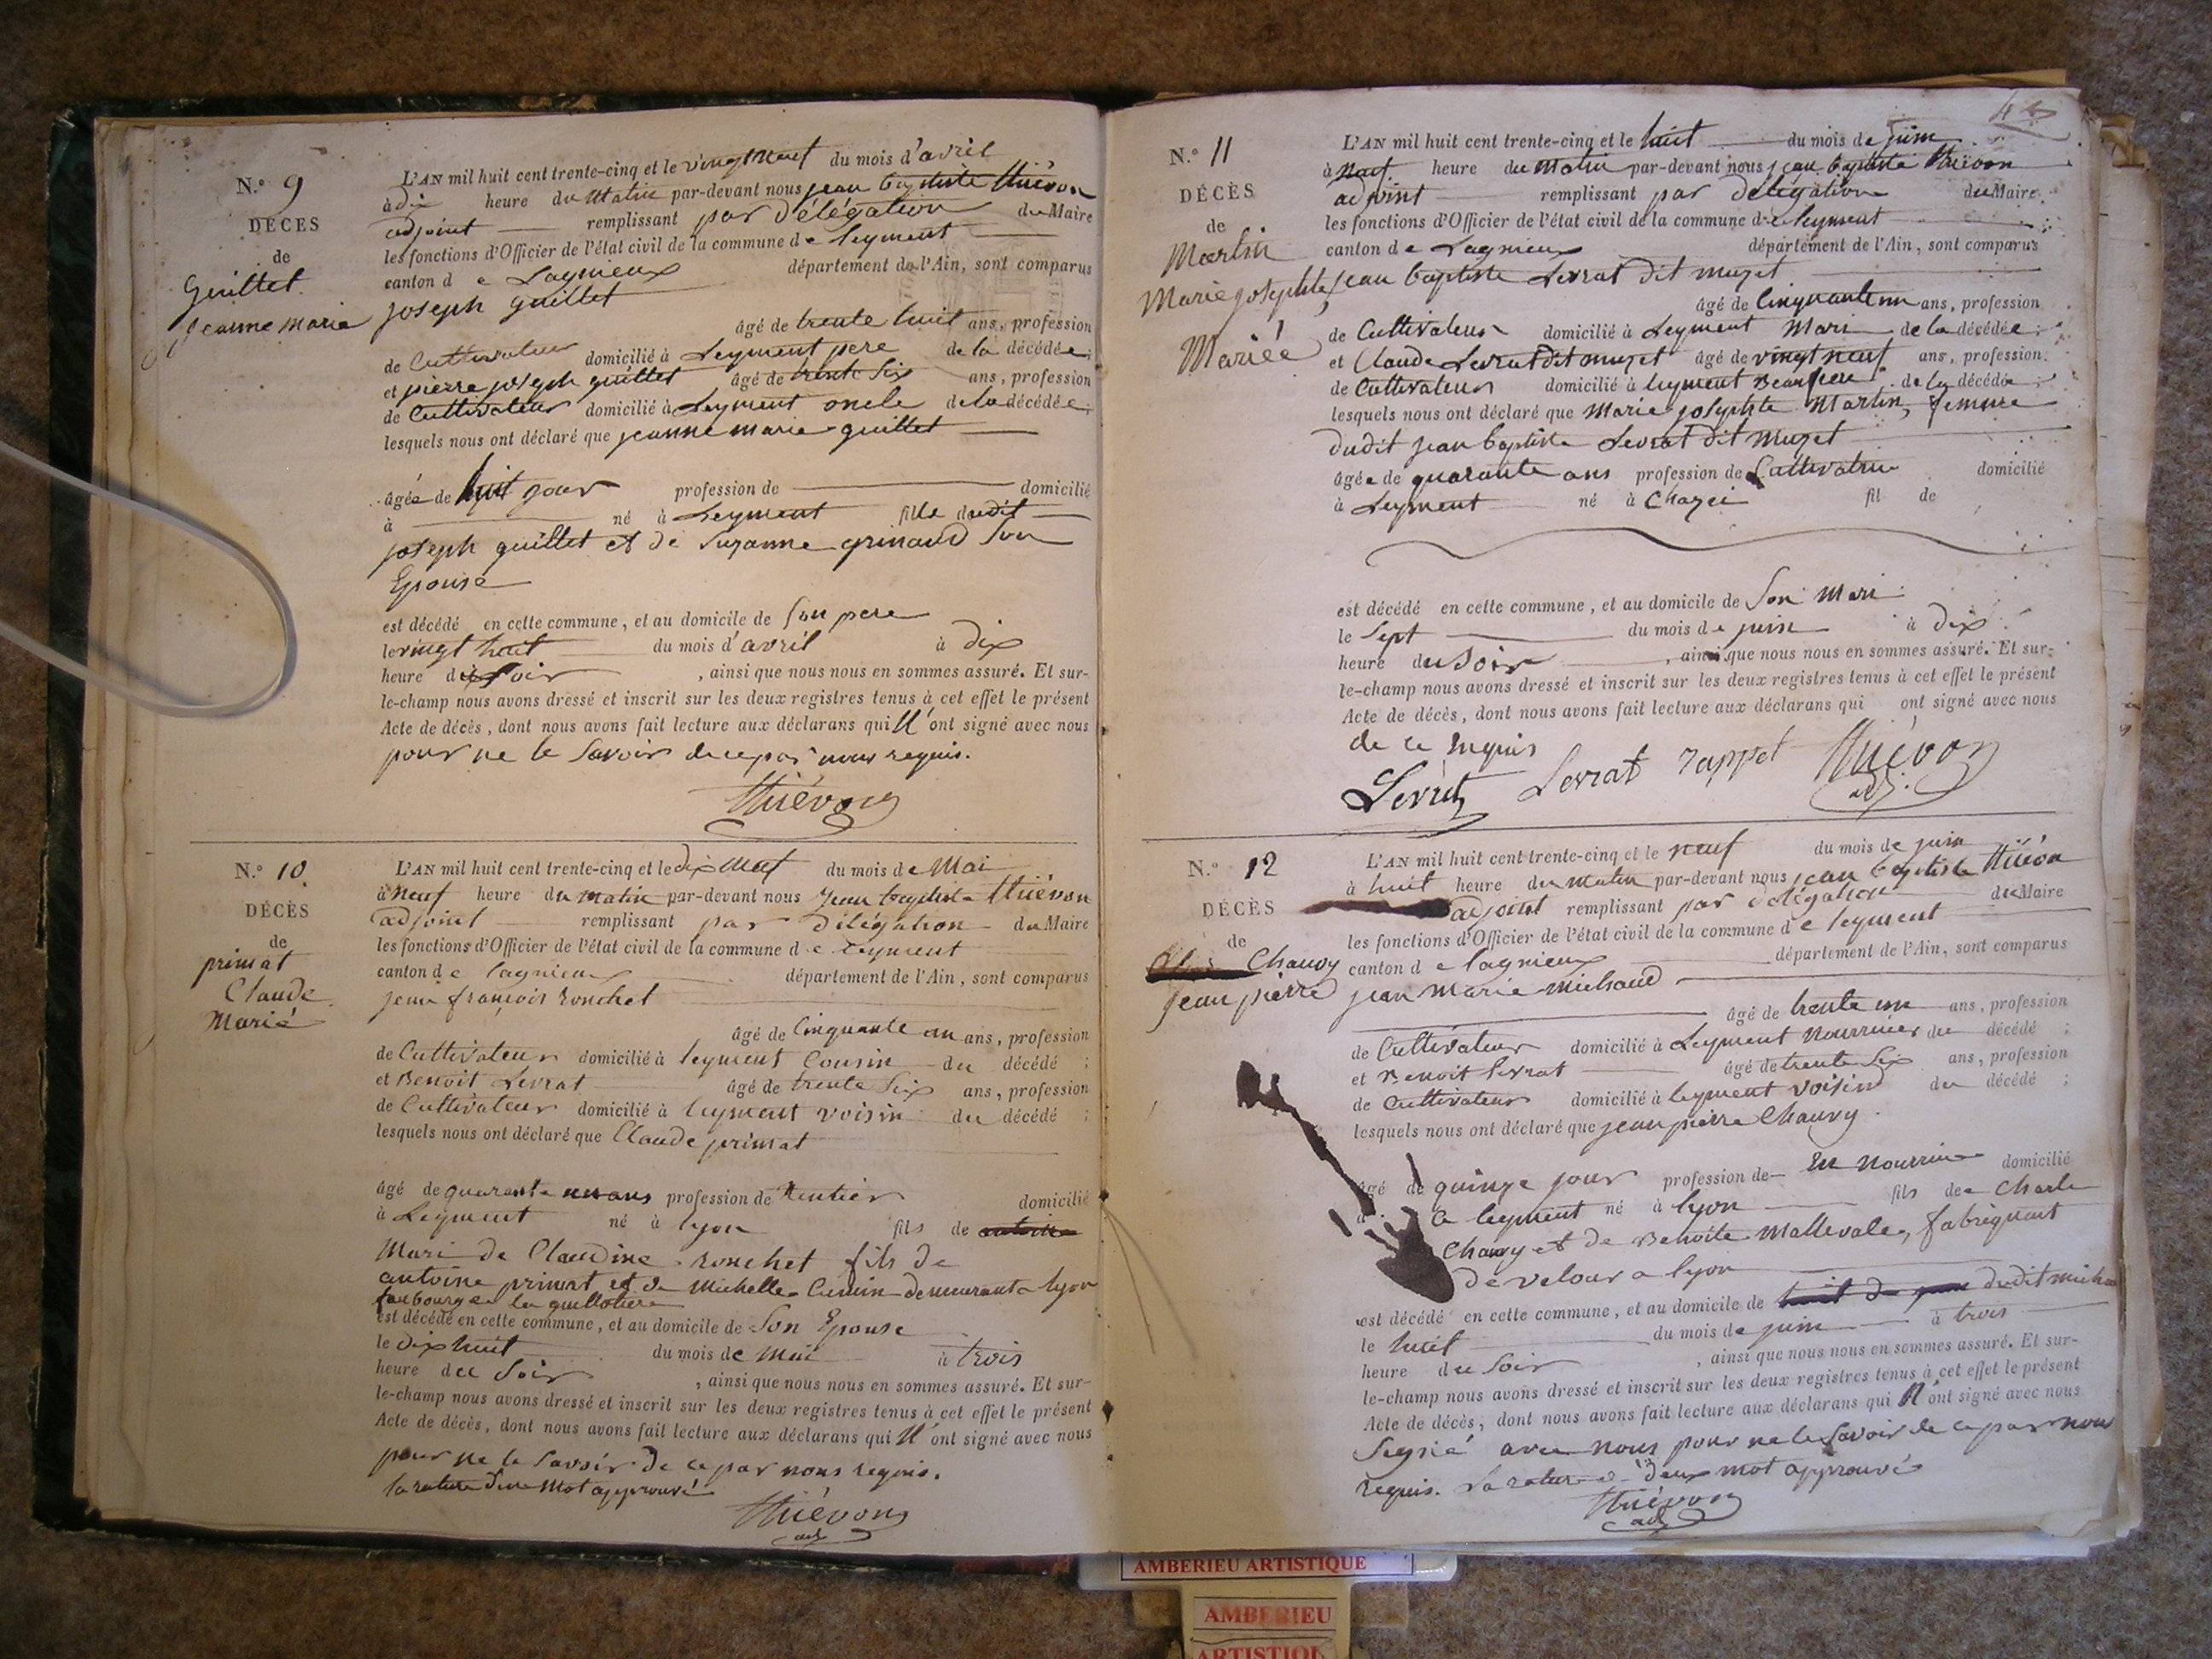 N.° 9
DÉCES
de
Guillet
jeanne marie
L'AN mil huit cent trente-cinq et le vingt neuf du mois d'avril
à dix heure du Matin par-devant nous jean baptiste thiévon
adjoint remplissant par Délégation du Maire
les fonctions d'Officier de l'état civil de la commune de leyment
canton de Lagnieux département de l'Ain, sont comparus
joseph guillet
âgé de trente huit ans, profession
de Cultivateur domicilié à Leyment pere de la décédée;
et pierre joseph guillet âgé de trente Six ans, profession
de Cultivateur domicilié à Leyment oncle de la décédée;
lesquels nous ont déclaré que jeanne marie guillet
âgée de huit jour profession de domicilié
à né à Leyment fille dudit
joseph guillet et de Suzanne grinand Son
Epouse
est décédé en cette commune, et au domicile de Son pere
le vingt huit du mois d'avril à dix
heure du Soir, ainsi que nous nous en sommes assuré. Et sur-
le-champ nous avons dressé et inscrit sur les deux registres tenus à cet effet le présent
Acte de décès, dont nous avons fait lecture aux déclarans qui N'ont signé avec nous
pour ne le Savoir de ce par nous requis.
thiévon
N.° 10
DÉCÈS
de
primat
Claude
Marié
L'AN mil huit cent trente-cinq et le dix neuf du mois de Mai
à Neuf heure du matin par-devant nous Jean baptiste thiévon
adjoint remplissant par délégation du Maire
les fonctions d'Officier de l'état civil de la commune de leyment
canton de lagnieux département de l'Ain, sont comparus
jean françois ronchet
âgé de Cinquante un ans, profession
de Cultivateur domicilié à leyment Cousin du décédé;
et Benoit Levrat âgé de trente Six ans, profession
de Cultivateur domicilié à leyment voisin du décédé;
lesquels nous ont déclaré que Claude primat
âgé de quarante un ans profession de Rentier domicilié
à Leyment né à lyon fils de
Mari de Claudine ronchet fils de
antoine primat et de Michelle Cumin demeurant a lyon
faubourg de la guillotiere
est décédé en cette commune, et au domicile de Son Epouse
le dix huit du mois de Mai à trois
heure du Soir, ainsi que nous nous en sommes assuré. Et sur-
le-champ nous avons dressé et inscrit sur les deux registres tenus à cet effet le présent
Acte de décès, dont nous avons fait lecture aux déclarans qui N'ont signé avec nous
pour ne le Savoir de ce par nous requis.
la rature d'un mot approuvé
thiévon
adj
N.° 11
DÉCÈS
de
Martin
Marie josephte
Mariée
L'AN mil huit cent trente-cinq et le huit du mois de juin
à Neuf heure du Matin par-devant nous jean baptiste thiévon
adjoint remplissant par délégation du Maire
les fonctions d'Officier de l'état civil de la commune de leyment
canton de Lagnieux département de l'Ain, sont comparus
jean baptiste Levrat dit muzet
âgé de Cinquante un ans, profession
de Cultivateur domicilié à Leyment Mari de la décédée;
et Claude Levrat dit muzet âgé de vingt neuf ans, profession
de Cultivateur domicilié à leyment Beau frere de la décédée;
lesquels nous ont déclaré que Marie josephte Martin, femme
dudit jean baptiste Levrat dit Muzet
âgée de quarante ans profession de Cultivatrice domicilié
à Leyment né à Chazei fil de
est décédé en cette commune, et au domicile de Son Mari
le Sept du mois de juin à dix
heure du Soir, ainsi que nous nous en sommes assuré. Et sur-
le-champ nous avons dressé et inscrit sur les deux registres tenus à cet effet le présent
Acte de décès, dont nous avons fait lecture aux déclarans qui ont signé avec nous
de ce requis
Levrat Levrat rappet thiévon
adj.
N.° 12
DÉCÈS
de
Chauvy
jean pierre
L'AN mil huit cent trente-cinq et le neuf du mois de juin
à huit heure du matin par-devant nous jean baptiste thiévon
adjoint remplissant par délégation du Maire
les fonctions d'Officier de l'état civil de la commune de leyment
canton de lagnieux département de l'Ain, sont comparus
jean marie michaud
âgé de trente un ans, profession
de Cultivateur domicilié à Leyment Nourricier du décédé;
et Benoit levrat âgé de trente Six ans, profession
de Cultivateur domicilié à leyment voisin du décédé;
lesquels nous ont déclaré que jean pierre Chauvy
âgé de quinze jour profession de En nourrice domicilié
à leyment né à lyon fils de Charle
Chauvy et de Benoite Mallevale, fabriquant
de velour a lyon
est décédé en cette commune, et au domicile de dudit michaud
le huit du mois de juin à trois
heure du Soir, ainsi que nous nous en sommes assuré. Et sur-
le-champ nous avons dressé et inscrit sur les deux registres tenus à cet effet le présent
Acte de décès, dont nous avons fait lecture aux déclarans qui N'ont signé avec nous
Segné avec nous pour ne le Savoir de ce par nous
requis. La rature de deux mot approuvé
thiévon
adj
AMBERIEU ARTISTIQUE
AMBERIEU
ARTISTIQUE